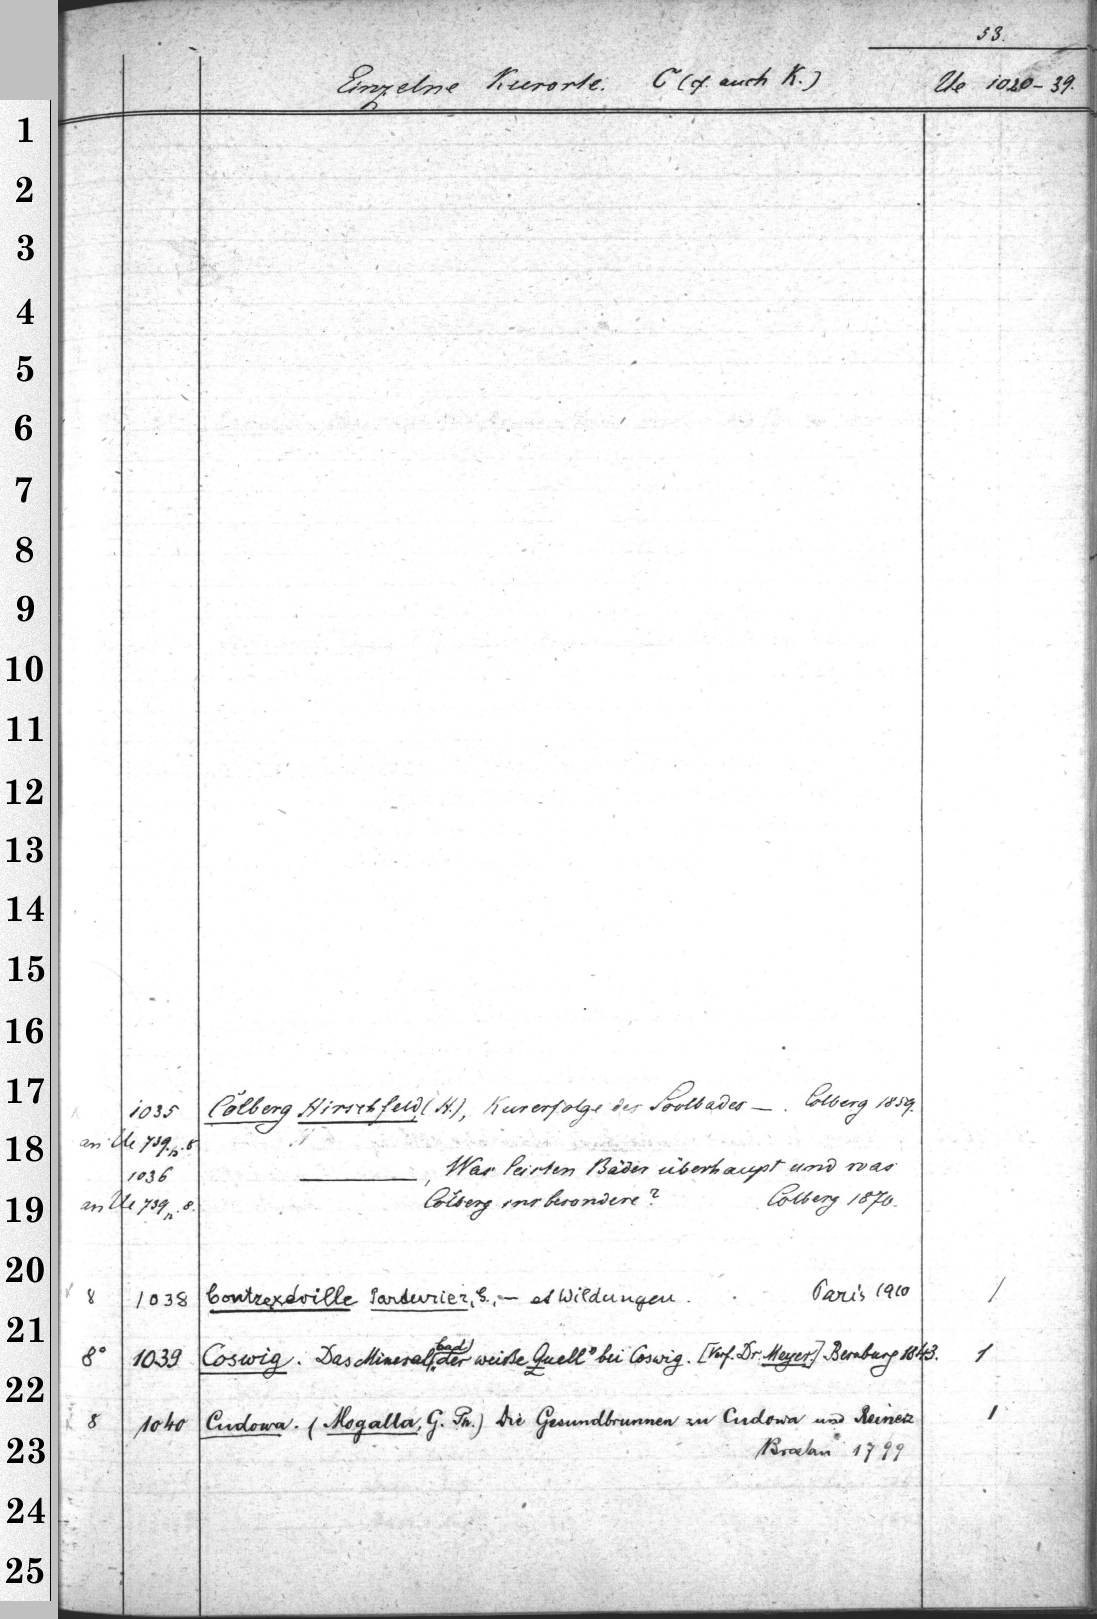 53.
Einzelne Kurorte. C (cf. auch K.) Ue 1020-39.
1
2
3
4
5
6
7
8
9
10
11
12
13
14
15
16
17
18
19
20
21
22
23
24
25
1035 Colberg Hirschfeld (H.), Kurerfolge des Soolbades —. Colberg 1859.
an Ue 739n. 8
1036 ———, Was leisten Bäder überhaupt und was
an Ue 739n. 8. Colberg insbesondere? Colberg 1870.
8 1038 Contrexéville , — et Wildungen. Paris 1910 /
8° 1039 Coswig. Das Mineralbad „der weiße Quell" bei Coswig. [Verf. Dr. Meyer] Bernburg 1843. 1
8 1040 Cudowa. (Mogalla, G. Ph.) Die Gesundbrunnen zu Cudowa und Reinerz 1
Breslau 1799